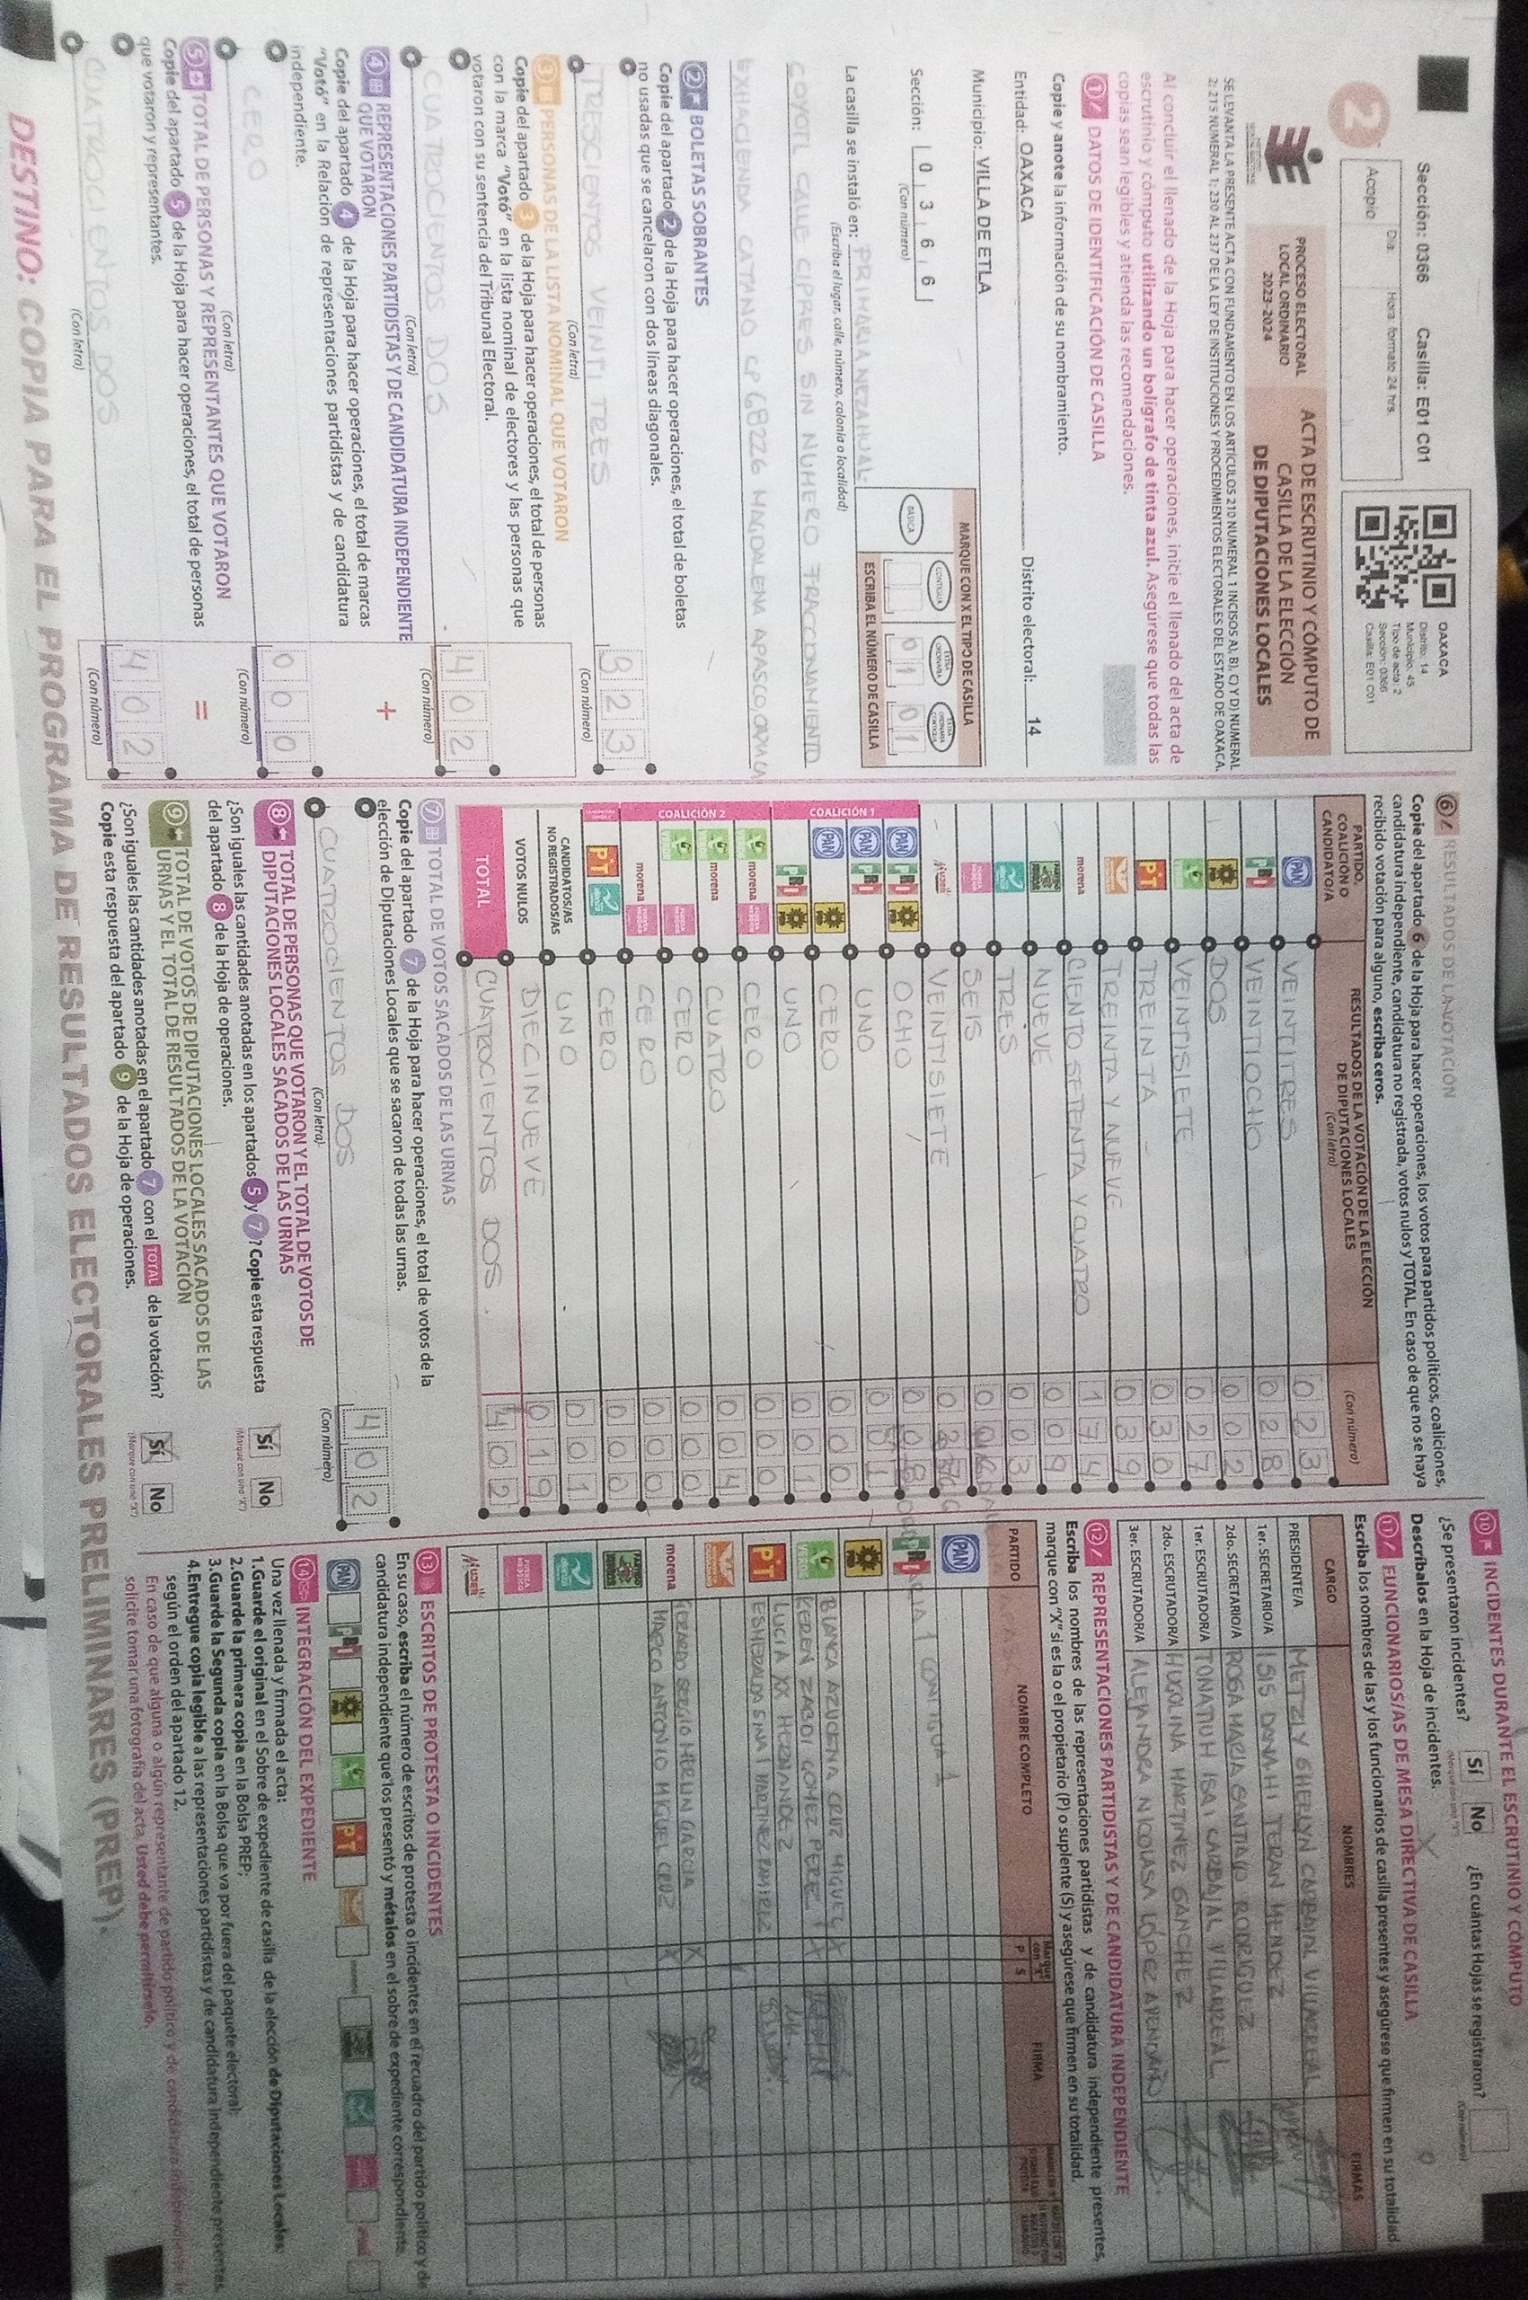 Sección: 0366 Casilla: E01 C01
2
Día: Hora formato 24 hrs.
Acopio
OAXACA
Distrito: 14
Municipio: 45
Tipo de acta: 2
Sección: 0366
Casilla: E01 C01
PROCESO ELECTORAL
LOCAL ORDINARIO
2023-2024
ACTA DE ESCRUTINIO Y CÓMPUTO DE
CASILLA DE LA ELECCIÓN
DE DIPUTACIONES LOCALES
SE LEVANTA LA PRESENTE ACTA CON FUNDAMENTO EN LOS ARTÍCULOS 210 NUMERAL 1 INCISOS A), B), C) Y D) NUMERAL
2; 215 NUMERAL 1; 230 AL 237 DE LA LEY DE INSTITUCIONES Y PROCEDIMIENTOS ELECTORALES DEL ESTADO DE OAXACA.
Al concluir el llenado de la Hoja para hacer operaciones, inicie el llenado del acta de
escrutinio y cómputo utilizando un bolígrafo de tinta azul. Asegúrese que todas las
copias sean legibles y atienda las recomendaciones.
1 DATOS DE IDENTIFICACIÓN DE CASILLA
Copie y anote la información de su nombramiento.
Entidad: OAXACA Distrito electoral: 14
Municipio: VILLA DE ETLA
Sección: 0 3 6 6
(Con número)
MARQUE CON X EL TIPO DE CASILLA
BÁSICA CONTIGUA EXTRA ORDINARIA EXTRA ORDINARIA CONTIGUA
01 01
ESCRIBA EL NÚMERO DE CASILLA
La casilla se instaló en: PRIMARIA NEZAHUAL-
(Escriba el lugar, calle, número, colonia o localidad)
COYOTL CALLE CIPRES SIN NUMERO FRACCIONAMIENTO
EXHACIENDA CATANO CP 68226 MAGDALENA APASCO,
2 BOLETAS SOBRANTES
Copie del apartado 2 de la Hoja para hacer operaciones, el total de boletas
no usadas que se cancelaron con dos líneas diagonales.
TRESCIENTOS VEINTI TRES 923
(Con letra) (Con número)
3 PERSONAS DE LA LISTA NOMINAL QUE VOTARON
Copie del apartado 3 de la Hoja para hacer operaciones, el total de personas
con la marca "Votó" en la lista nominal de electores y las personas que
votaron con su sentencia del Tribunal Electoral.
CUATROCIENTOS DOS 402
(Con letra) (Con número)
4 REPRESENTACIONES PARTIDISTAS Y DE CANDIDATURA INDEPENDIENTE
QUE VOTARON +
Copie del apartado 4 de la Hoja para hacer operaciones, el total de marcas
"Votó" en la Relación de representaciones partidistas y de candidatura
independiente.
CERO 000
(Con letra) (Con número)
5 TOTAL DE PERSONAS Y REPRESENTANTES QUE VOTARON =
Copie del apartado 5 de la Hoja para hacer operaciones, el total de personas
que votaron y representantes.
CUATROCIENTOS DOS 402
(Con letra) (Con número)
6 RESULTADOS DE LA VOTACIÓN
Copie del apartado 6 de la Hoja para hacer operaciones, los votos para partidos políticos, coaliciones,
candidatura independiente, candidatura no registrada, votos nulos y TOTAL. En caso de que no se haya
recibido votación para alguno, escriba ceros.
PARTIDO, COALICIÓN O CANDIDATO/A
RESULTADOS DE LA VOTACIÓN DE LA ELECCIÓN
DE DIPUTACIONES LOCALES
(Con letra) (Con número)
PAN VEINTITRES 023
PRI VEINTIOCHO 028
PRD DOS 002
VERDE VEINTISIETE 027
PT TREINTA 030
TREINTA Y NUEVE 039
morena CIENTO SETENTA Y CUATRO 174
NUEVE 009
TRES 003
SEIS 006
VEINTISIETE 027
COALICIÓN 1
PAN PRI PRD OCHO 008
PAN PRI UNO 001
PAN PRD CERO 000
PRI PRD UNO 001
COALICIÓN 2
VERDE morena FUERZA MÉXICO CERO 000
VERDE morena CUATRO 004
VERDE FUERZA MÉXICO CERO 000
morena FUERZA MÉXICO CERO 000
PT CERO 000
CANDIDATOS/AS NO REGISTRADOS/AS UNO 001
VOTOS NULOS DIECINUEVE 019
TOTAL CUATROCIENTOS DOS. 402
7 TOTAL DE VOTOS SACADOS DE LAS URNAS
Copie del apartado 7 de la Hoja para hacer operaciones, el total de votos de la
elección de Diputaciones Locales que se sacaron de todas las urnas.
CUATROCIENTOS DOS 402
(Con letra) (Con número)
8 TOTAL DE PERSONAS QUE VOTARON Y EL TOTAL DE VOTOS DE
DIPUTACIONES LOCALES SACADOS DE LAS URNAS
¿Son iguales las cantidades anotadas en los apartados 5 y 7? Copie esta respuesta
del apartado 8 de la Hoja de operaciones.
Sí No
(Marque con una "X")
9 TOTAL DE VOTOS DE DIPUTACIONES LOCALES SACADOS DE LAS
URNAS Y EL TOTAL DE RESULTADOS DE LA VOTACIÓN
¿Son iguales las cantidades anotadas en el apartado 7 con el TOTAL de la votación?
Copie esta respuesta del apartado 9 de la Hoja de operaciones.
Sí No
(Marque con una "X")
10 INCIDENTES DURANTE EL ESCRUTINIO Y CÓMPUTO
¿Se presentaron incidentes? Sí No ¿En cuántas Hojas se registraron?
(Marque con una "X") (Con número)
Descríbalos en la Hoja de incidentes.
11 FUNCIONARIOS/AS DE MESA DIRECTIVA DE CASILLA
Escriba los nombres de las y los funcionarios de casilla presentes y asegúrese que firmen en su totalidad
CARGO NOMBRES FIRMAS
PRESIDENTE/A METZLY SHERLYN CARBAJAL VILLARREAL
1er. SECRETARIO/A ISIS DANAHI TERAN MENDEZ
2do. SECRETARIO/A ROSA MARIA SANTIAGO RODRIGUEZ
1er. ESCRUTADOR/A TONATIUH ISAI CARBAJAL VILLARREAL
2do. ESCRUTADOR/A HUGOLINA MARTINEZ SANCHEZ
3er. ESCRUTADOR/A ALEJANDRA NICOLASA LÓPEZ AVENDAÑO
12 REPRESENTACIONES PARTIDISTAS Y DE CANDIDATURA INDEPENDIENTE
Escriba los nombres de las representaciones partidistas y de candidatura independiente presentes,
marque con "X" si es la o el propietario (P) o suplente (S) y asegúrese que firmen en su totalidad.
PARTIDO NOMBRE COMPLETO Marque con "X" P S FIRMA
PAN
PRI CONTIGUA 1
PRD
VERDE BLANCA AZUCENA CRUZ MIGUEL X
KEREN ZABDI GOMEZ PEREZ X
PT LUCIA XX HERNANDEZ
ESMERALDA SINAI MARTINEZ RAMIREZ
morena GERARDO SERGIO MERLIN GARCIA X
MARCO ANTONIO MIGUEL CRUZ X
13 ESCRITOS DE PROTESTA O INCIDENTES
En su caso, escriba el número de escritos de protesta o incidentes en el recuadro del partido político y de
candidatura independiente que los presentó y métalos en el sobre de expediente correspondiente.
PAN PRI PRD VERDE PT
14 INTEGRACIÓN DEL EXPEDIENTE
Una vez llenada y firmada el acta:
1.Guarde el original en el Sobre de expediente de casilla de la elección de Diputaciones Locales;
2.Guarde la primera copia en la Bolsa PREP;
3.Guarde la Segunda copia en la Bolsa que va por fuera del paquete electoral;
4.Entregue copia legible a las representaciones partidistas y de candidatura independiente presentes,
según el orden del apartado 12.
En caso de que alguna o algún representante de partido político y de candidatura independiente le
solicite tomar una fotografía del acta, Usted debe permitírselo.
DESTINO: COPIA PARA EL PROGRAMA DE RESULTADOS ELECTORALES PRELIMINARES (PREP).